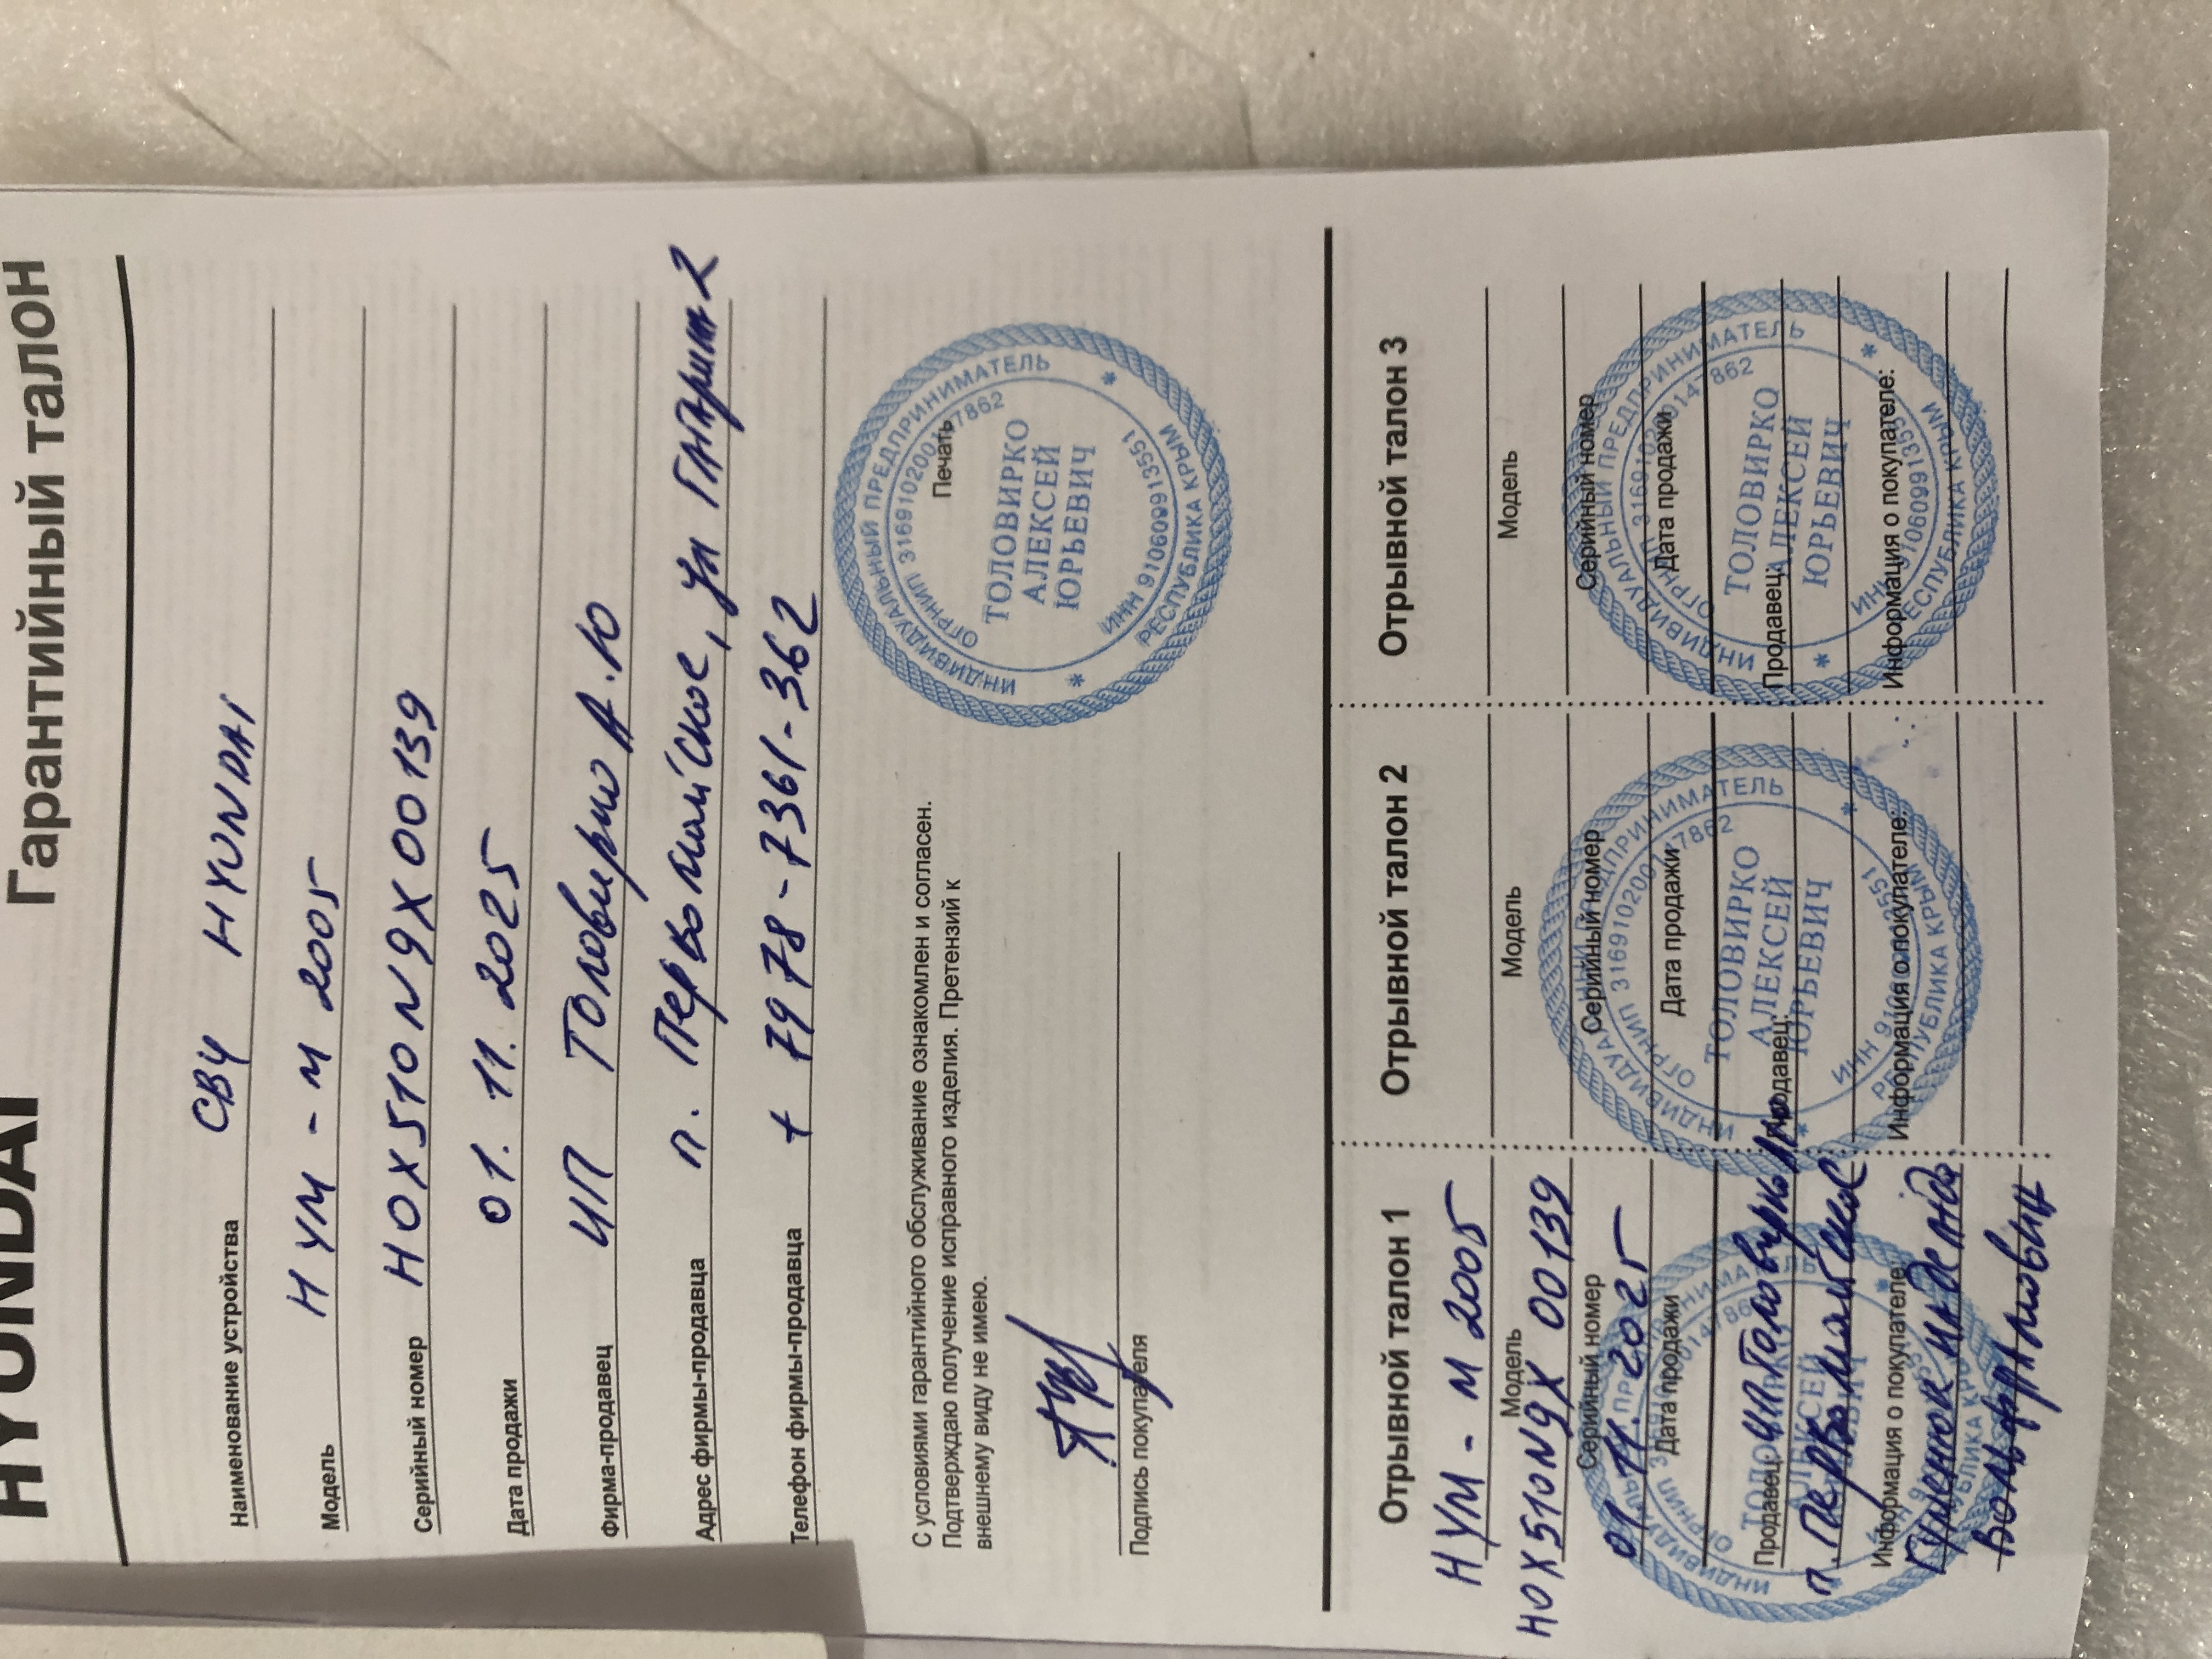 HYUNDAI
Гарантийный талон
Наименование устройства СВЧ HYUNDAI
Модель HYM-M 2005
Серийный номер HOX510N9X00139
Дата продажи 01.11.2025
Фирма-продавец ИП Толовирко А.Ю
Адрес фирмы-продавца п. Первомайское, ул Гагарина 2
Телефон фирмы-продавца +7978-7361-362
С условиями гарантийного обслуживание ознакомлен и согласен.
Подтверждаю получение исправного изделия. Претензий к
внешнему виду не имею.
Печать
ИНДИВИДУАЛЬНЫЙ ПРЕДПРИНИМАТЕЛЬ
ТОЛОВИРКО
АЛЕКСЕЙ
ЮРЬЕВИЧ
ИНН 9106099 1355
РЕСПУБЛИКА КРЫМ
Подпись покупателя
Отрывной талон 1
HYM-M 2005
Модель
HOX510N9X 00139
Серийный номер
01.11.2025
Дата продажи
Продавец: ИП Толовирко
п. Первомайское
Информация о покупателе:
Отрывной талон 2
Модель
Серийный номер
Дата продажи
Продавец:
Информация о покупателе:
ТОЛОВИРКО
АЛЕКСЕЙ
ЮРЬЕВИЧ
РЕСПУБЛИКА КРЫМ
Отрывной талон 3
Модель
Серийный номер
Дата продажи
Продавец:
Информация о покупателе:
ИНДИВИДУАЛЬНЫЙ ПРЕДПРИНИМАТЕЛЬ
ТОЛОВИРКО
АЛЕКСЕЙ
ЮРЬЕВИЧ
РЕСПУБЛИКА КРЫМ